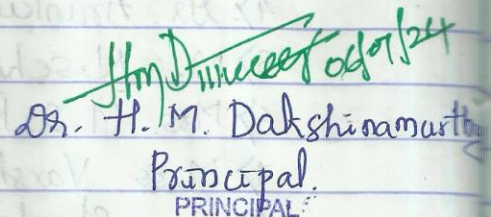 06/07/24
Dr. H. M. Dakshinamurthy
Principal.
PRINCIPAL